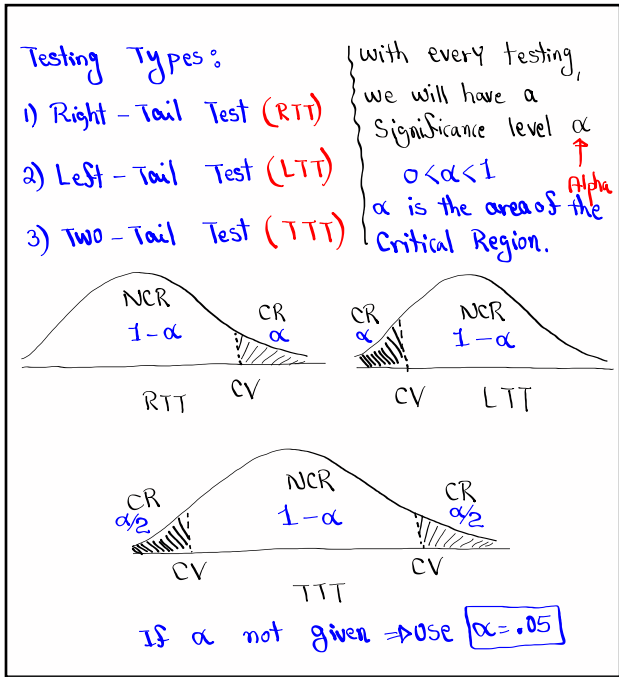 Testing Types:
1) Right-Tail Test (RTT)
2) Left-Tail Test (LTT)
3) Two-Tail Test (TTT)
with every testing,
we will have a
Significance level α
0<α<1
Alpha
α is the area of the
Critical Region.
NCR
1-α
CR
α
CV
RTT
CR
α
NCR
1-α
CV
LTT
CR
α/2
NCR
1-α
CR
α/2
CV
CV
TTT
If α not given ⇒ USE α=.05